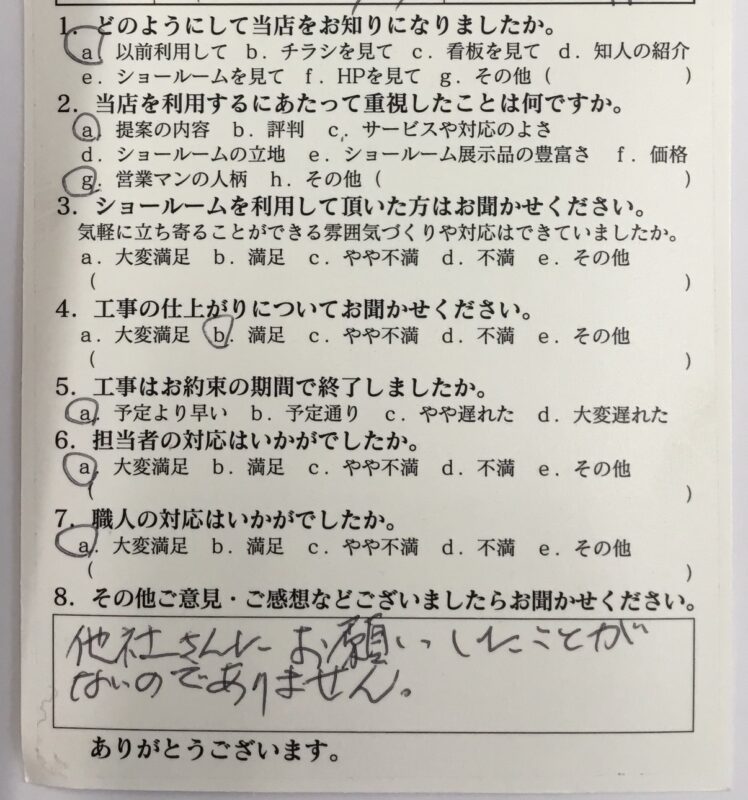 1．どのようにして当店をお知りになりましたか。
a．以前利用して b．チラシを見て c．看板を見て d．知人の紹介
e．ショールームを見て f．HPを見て g．その他（ ）
2．当店を利用するにあたって重視したことは何ですか。
a．提案の内容 b．評判 c．サービスや対応のよさ
d．ショールームの立地 e．ショールーム展示品の豊富さ f．価格
g．営業マンの人柄 h．その他（ ）
3．ショールームを利用して頂いた方はお聞かせください。
気軽に立ち寄ることができる雰囲気づくりや対応はできていましたか。
a．大変満足 b．満足 c．やや不満 d．不満 e．その他
（ ）
4．工事の仕上がりについてお聞かせください。
a．大変満足 b．満足 c．やや不満 d．不満 e．その他
（ ）
5．工事はお約束の期間で終了しましたか。
a．予定より早い b．予定通り c．やや遅れた d．大変遅れた
6．担当者の対応はいかがでしたか。
a．大変満足 b．満足 c．やや不満 d．不満 e．その他
（ ）
7．職人の対応はいかがでしたか。
a．大変満足 b．満足 c．やや不満 d．不満 e．その他
（ ）
8．その他ご意見・ご感想などございましたらお聞かせください。
他社さんに お願いしたことが
ないのでありません。
ありがとうございます。